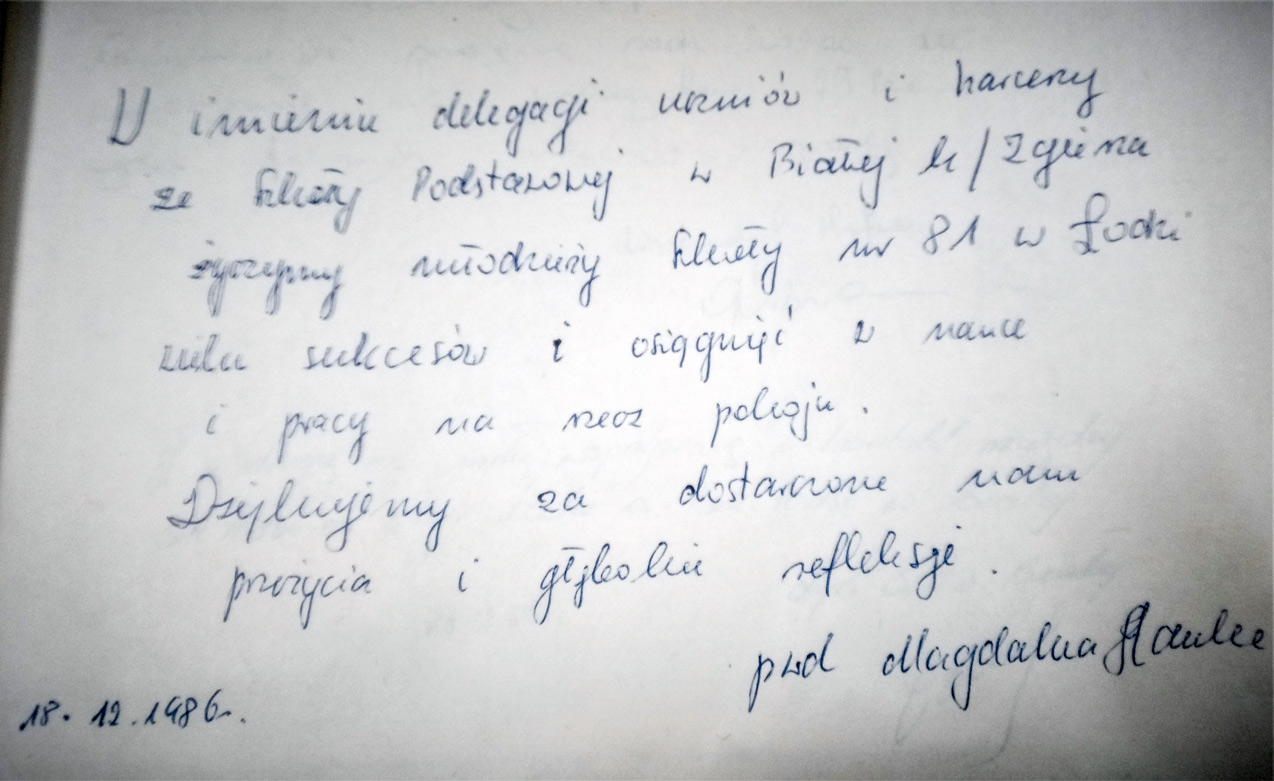 W imieniu delegacji uczniów i harcerzy
ze Szkoły Podstawowej w Białej k/Zgierza
życzymy młodzieży Szkoły nr 81 w Łodzi
wielu sukcesów i osiągnięć w nauce
i pracy na rzecz pokoju.
Dziękujemy za dostarczone nam
przeżycia i głębokie refleksje.
pwd Magdalena
18.12.1986r.